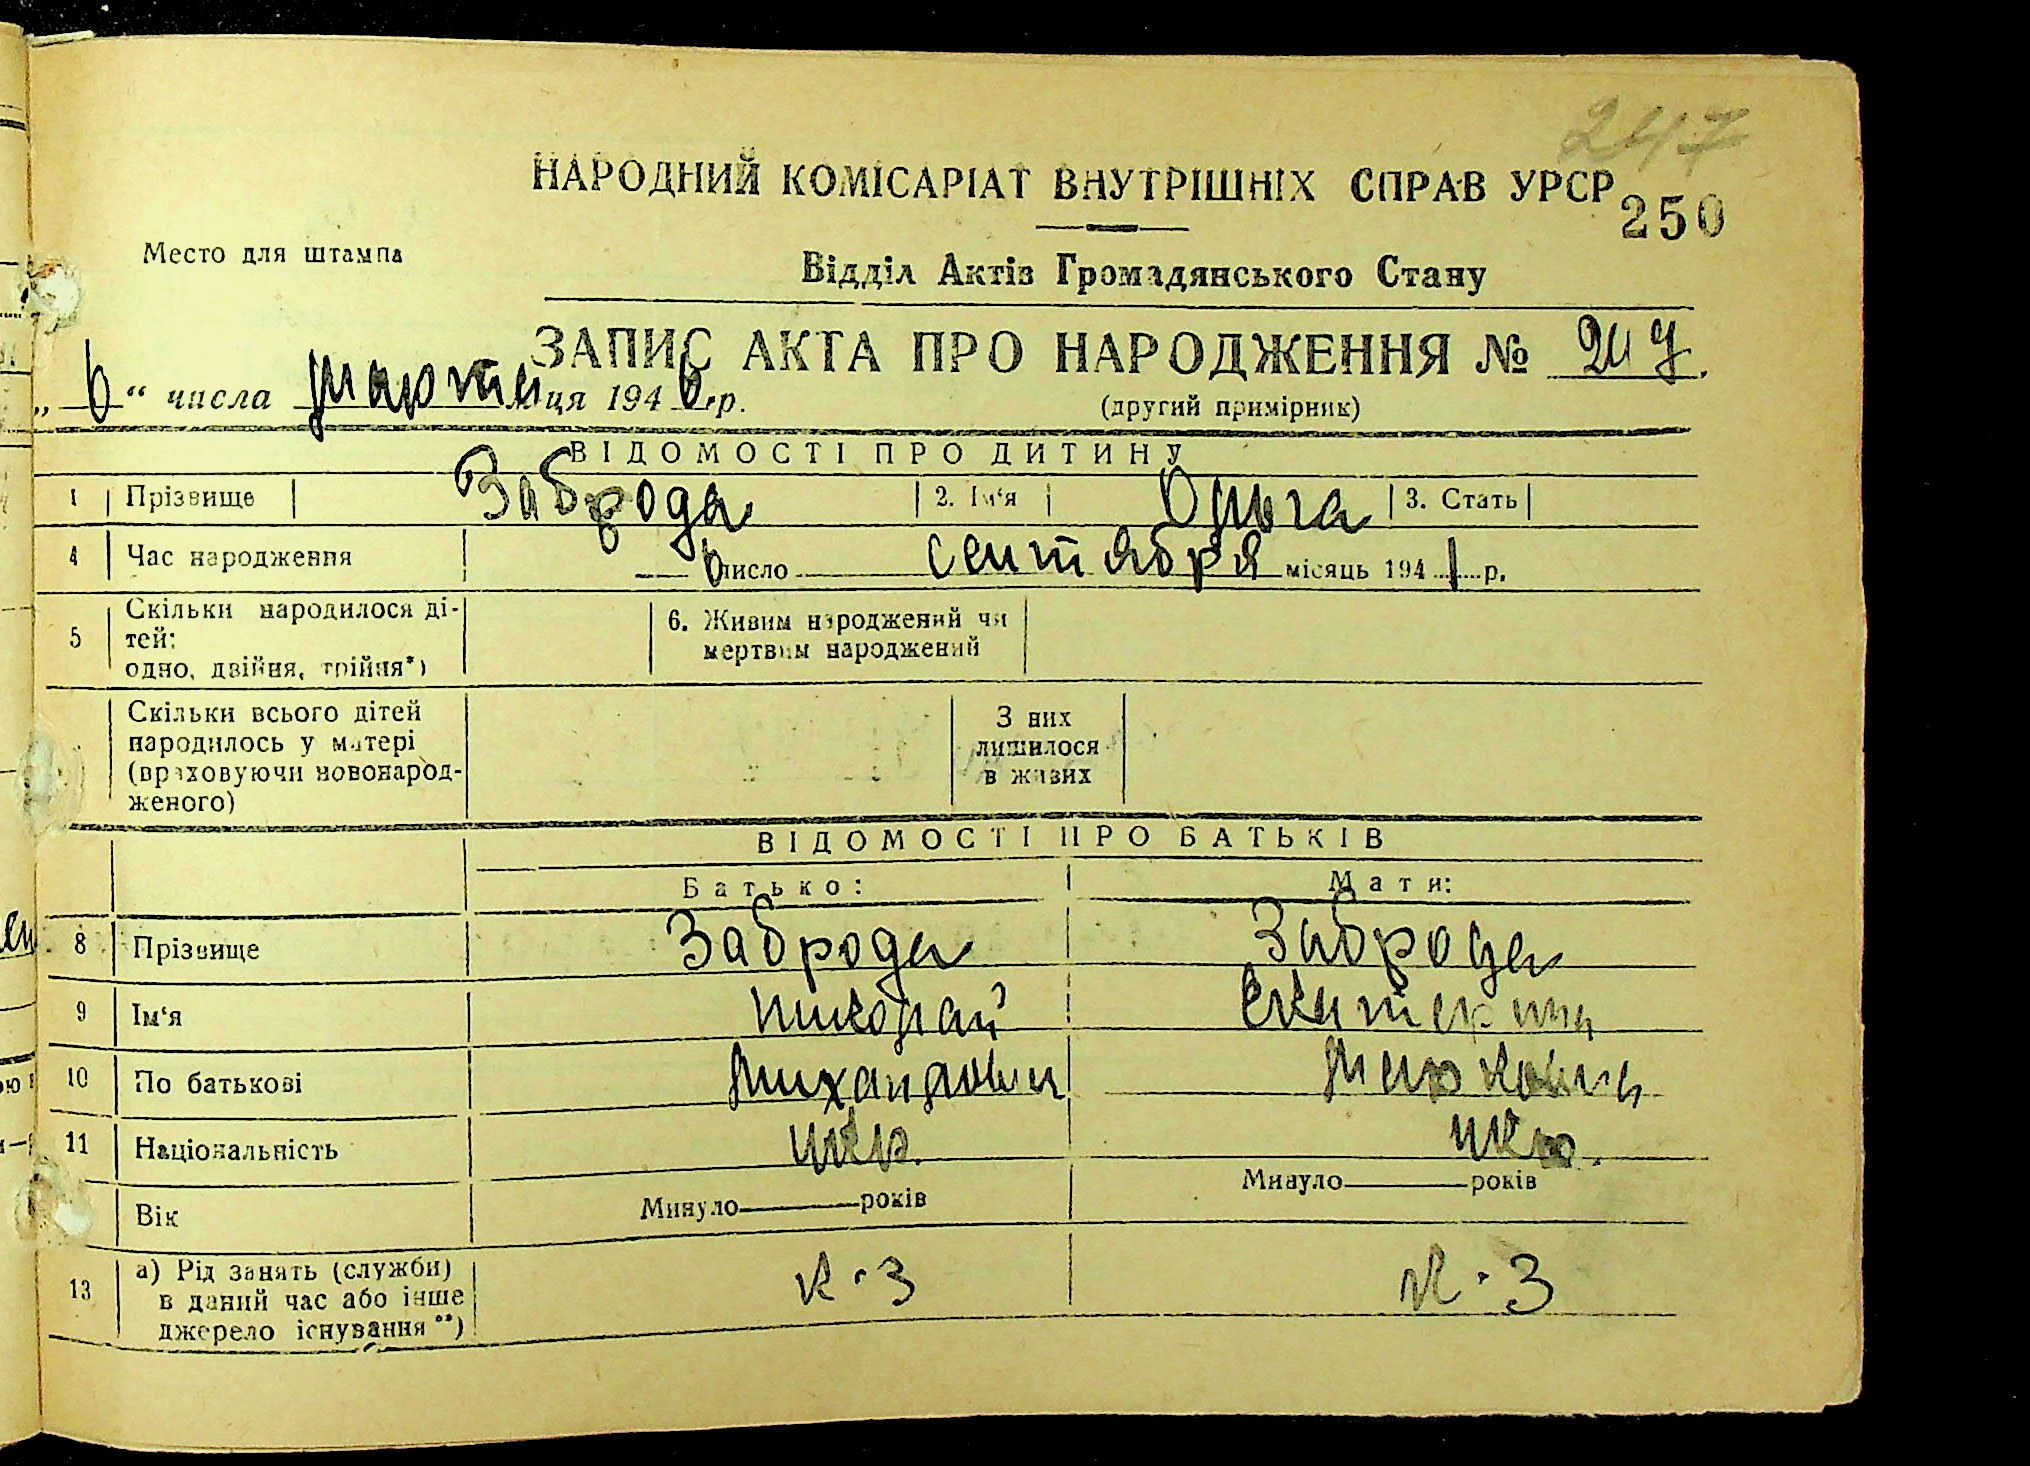 247
НАРОДНИЙ КОМІСАРІАТ ВНУТРІШНІХ СПРАВ УРСР
250
Место для штампа
Відділ Актів Громадянського Стану
ЗАПИС АКТА ПРО НАРОДЖЕННЯ №
„6“ числа марта м-ця 1946 р.
(другий примірник)
ВІДОМОСТІ ПРО ДИТИНУ
1 Прізвище Заброда 2. Ім‘я Ольга 3. Стать
4 Час народження 6 число сентября місяць 1941 р.
5 Скільки народилося ді-
тей:
одно, двійня, трійня*)
6. Живим народжений чи
мертвим народжений
Скільки всього дітей
народилось у матері
(враховуючи новонарод-
женого)
З них
лишилося
в живих
ВІДОМОСТІ ПРО БАТЬКІВ
Батько: Мати:
8 Прізвище Заброда Заброда
9 Ім‘я Николай Екатерина
10 По батькові Михайлович
11 Національність укр. укр.
Вік Минуло років Минуло років
13 а) Рід занять (служби)
в даний час або інше
джерело існування**)
к-з к-з